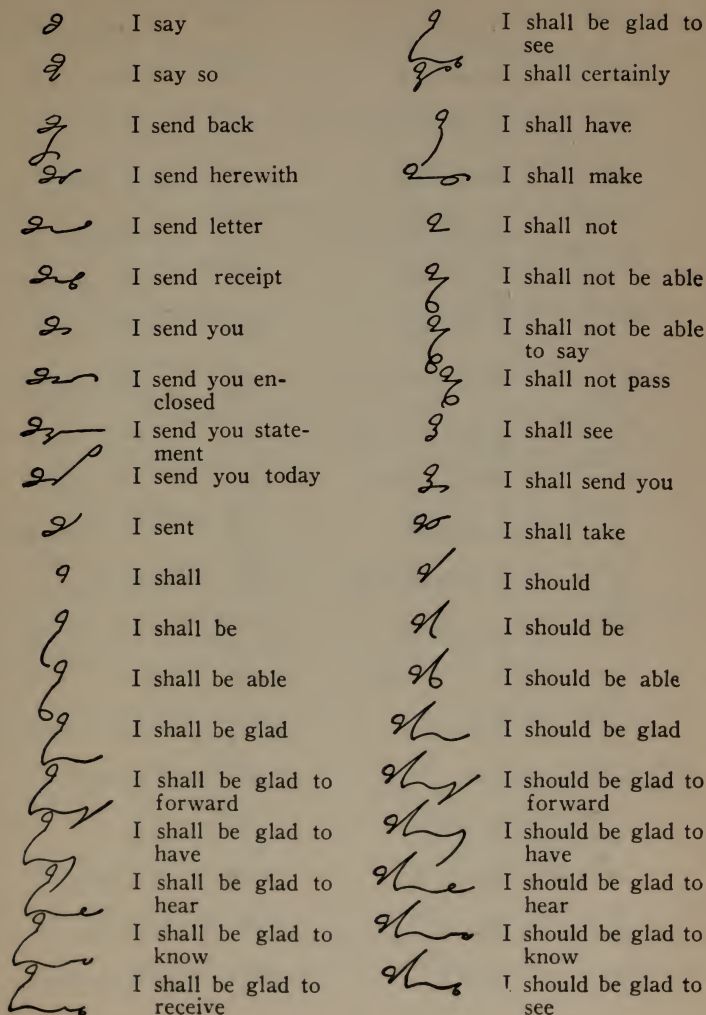 I say
I say so
I send back
I send herewith
I send letter
I send receipt
I send you
I send you en-
closed
I send you state-
ment
I send you today
I sent
I shall
I shall be
I shall be able
I shall be glad
I shall be glad to
forward
I shall be glad to
have
I shall be glad to
hear
I shall be glad to
know
I shall be glad to
receive
I shall be glad to
see
I shall certainly
I shall have
I shall make
I shall not
I shall not be able
I shall not be able
to say
I shall not pass
I shall see
I shall send you
I shall take
I should
I should be
I should be able
I should be glad
I should be glad to
forward
I should be glad to
have
I should be glad to
hear
I should be glad to
know
I should be glad to
see